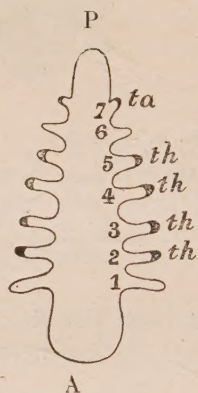 P
7 ta
6
5 th
4 th
3 th
2 th
1
A